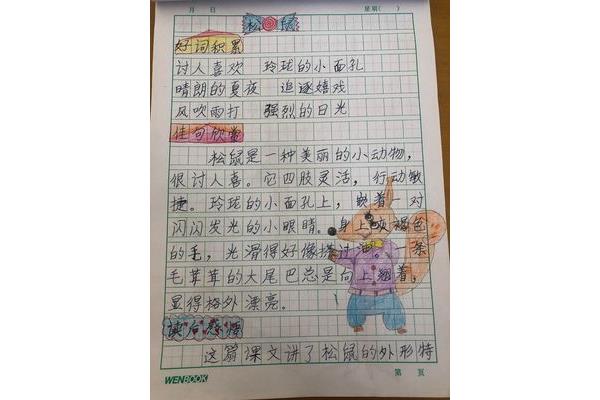 月 日 星期( )
松鼠
好词积累
讨人喜欢 玲珑的小面孔
晴朗的夏夜 追逐嬉戏
风吹雨打 强烈的日光
佳句欣赏
松鼠是一种美丽的小动物,
很讨人喜。它四肢灵活,行动敏
捷。玲珑的小面孔上,嵌着一对
闪闪发光的小眼睛。身上灰褐色
的毛,光滑得好像搽过油。一条
毛茸茸的大尾巴总是向上翘着,
显得格外漂亮。
读后感悟
这篇课文讲了松鼠的外形特
WENBOOK 第 页